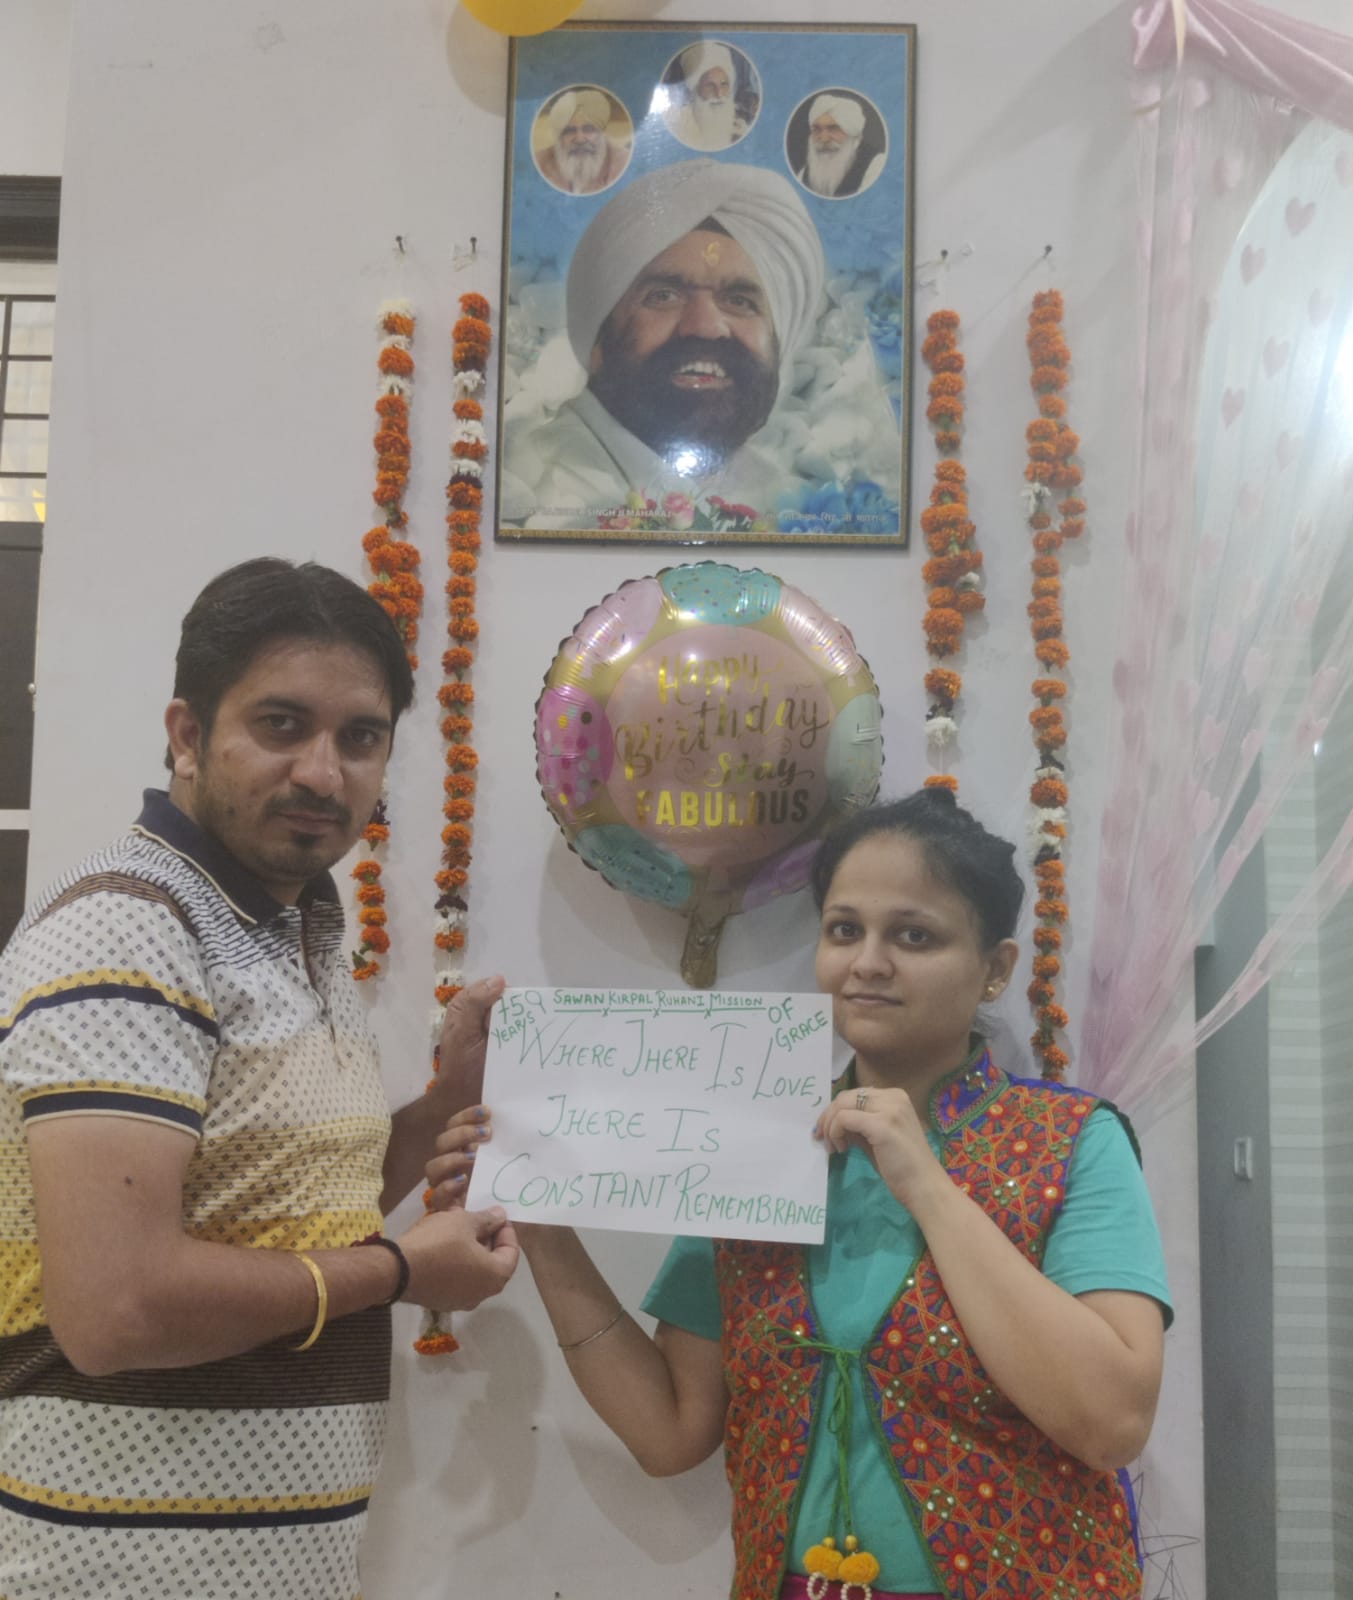 SINGH JI MAHARAJ
सिंह जी महाराज
Happy
Birthday
Stay
FABULOUS
SAWAN KIRPAL RUHANI MISSION
YEARS OF
GRACE
WHERE THERE IS LOVE,
THERE IS
CONSTANT REMEMBRANCE